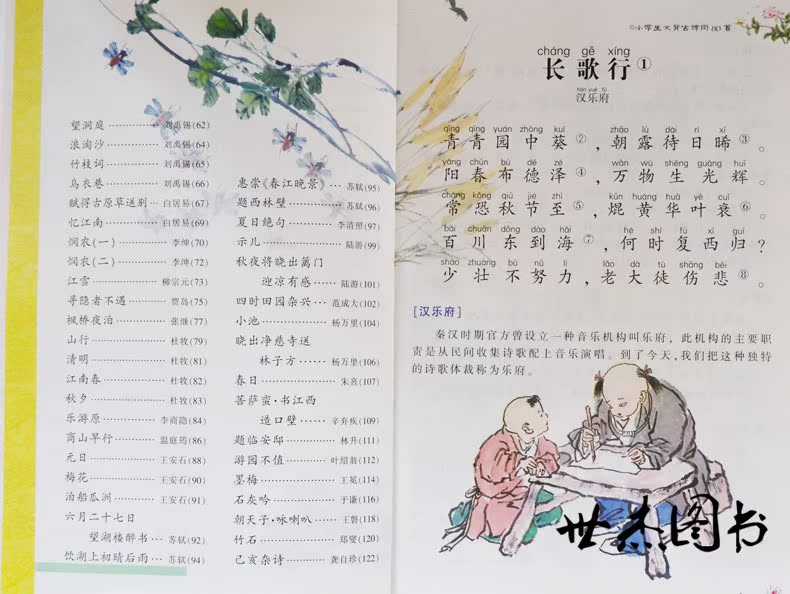 望洞庭 ………… 刘禹锡(62)
浪淘沙 ………… 刘禹锡(64)
竹枝词 ………… 刘禹锡(65)
乌衣巷 ………… 刘禹锡(66)
赋得古原草送别 … 白居易(67)
忆江南 ………… 白居易(69)
悯农(一) ………… 李绅(70)
悯农(二) ………… 李绅(72)
江雪 ………… 柳宗元(73)
寻隐者不遇 ………… 贾岛(75)
枫桥夜泊 ………… 张继(77)
山行 ………… 杜牧(79)
清明 ………… 杜牧(81)
江南春 ………… 杜牧(82)
秋夕 ………… 杜牧(83)
乐游原 ………… 李商隐(84)
商山早行 ………… 温庭筠(86)
元日 ………… 王安石(88)
梅花 ………… 王安石(90)
泊船瓜洲 ………… 王安石(91)
六月二十七日
望湖楼醉书 … 苏轼(92)
饮湖上初晴后雨 … 苏轼(94)
惠崇《春江晚景》 … 苏轼(95)
题西林壁 ………… 苏轼(96)
夏日绝句 ………… 李清照(97)
示儿 ………… 陆游(99)
秋夜将晓出篱门
迎凉有感 ……… 陆游(101)
四时田园杂兴 … 范成大(102)
小池 ………… 杨万里(104)
晓出净慈寺送
林子方 ……… 杨万里(106)
春日 ………… 朱熹(107)
菩萨蛮·书江西
造口壁 ……… 辛弃疾(109)
题临安邸 ………… 林升(111)
游园不值 ………… 叶绍翁(112)
墨梅 ………… 王冕(114)
石灰吟 ………… 于谦(116)
朝天子·咏喇叭 … 王磐(118)
竹石 ………… 郑燮(120)
己亥杂诗 ……… 龚自珍(122)
小学生必背古诗词80首
cháng gē xíng
长歌行①
hàn yuè fǔ
汉乐府
qīng qīng yuán zhōng kuí zhāo lù dài rì xī
青青园中葵②，朝露待日晞③。
yáng chūn bù dé zé wàn wù shēng guāng huī
阳春布德泽④，万物生光辉。
cháng kǒng qiū jié zhì kūn huáng huá yè shuāi
常恐秋节至⑤，焜黄华叶衰⑥。
bǎi chuān dōng dào hǎi hé shí fù xī guī
百川东到海⑦，何时复西归？
shào zhuàng bù nǔ lì lǎo dà tú shāng bēi
少壮不努力，老大徒伤悲⑧。
[汉乐府]
秦汉时期官方曾设立一种音乐机构叫乐府，此机构的主要职
责是从民间收集诗歌配上音乐演唱。到了今天，我们把这种独特
的诗歌体裁称为乐府。
世杰图书